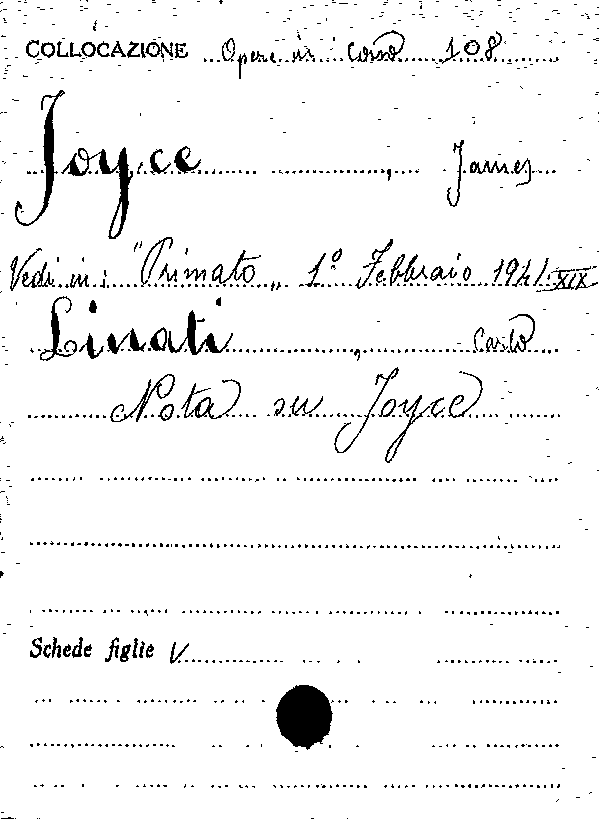 COLLOCAZIONE Opere in corso 108
Joyce, James
Vedi in: "Primato„ 1° Febbraio 1941 XIX
Linati, Carlo
Nota su Joyce
Schede figlie V